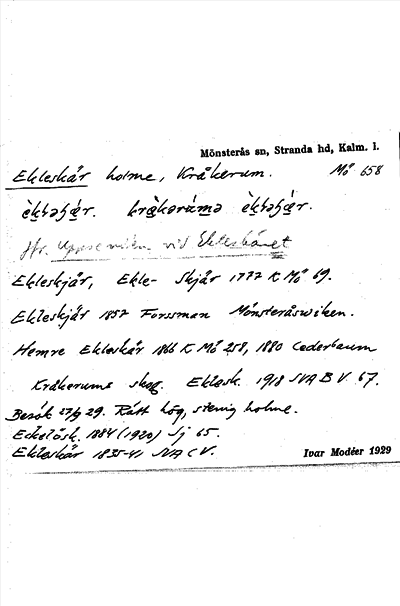 Mönsterås sn, Stranda hd, Kalm. l.
Ekleskär holme, Kråkerum. Mö 658
Jfr. Uppsemålen vid Ekleskäret
Ekleskjär, Ekle- Skjär 1777 K Mö 69.
Ekleskjär 1857 Forssman Mönsteråswiken.
Hemre Ekleskär 1866 K Mö 258, 1880 Cederbaum
Kråkerums skog. Eklask. 1918 SVA B V. 67.
Besök 27/9 29. Rätt hög, stenig holme.
Eckelösk. 1884 (1920) Sj 65.
Ekleskär 1835-41 SVA C V.
Ivar Modéer 1929